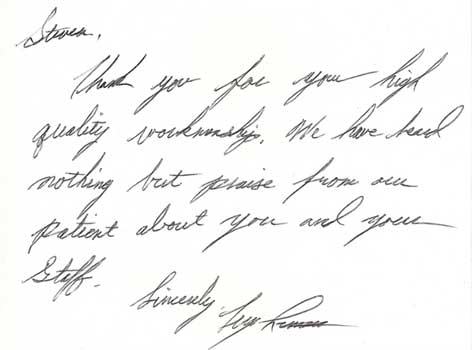 Steven,
Thank you for your high
quality workmanship. We have heard
nothing but praise from our
patient about you and your
Staff.
Sincerely,